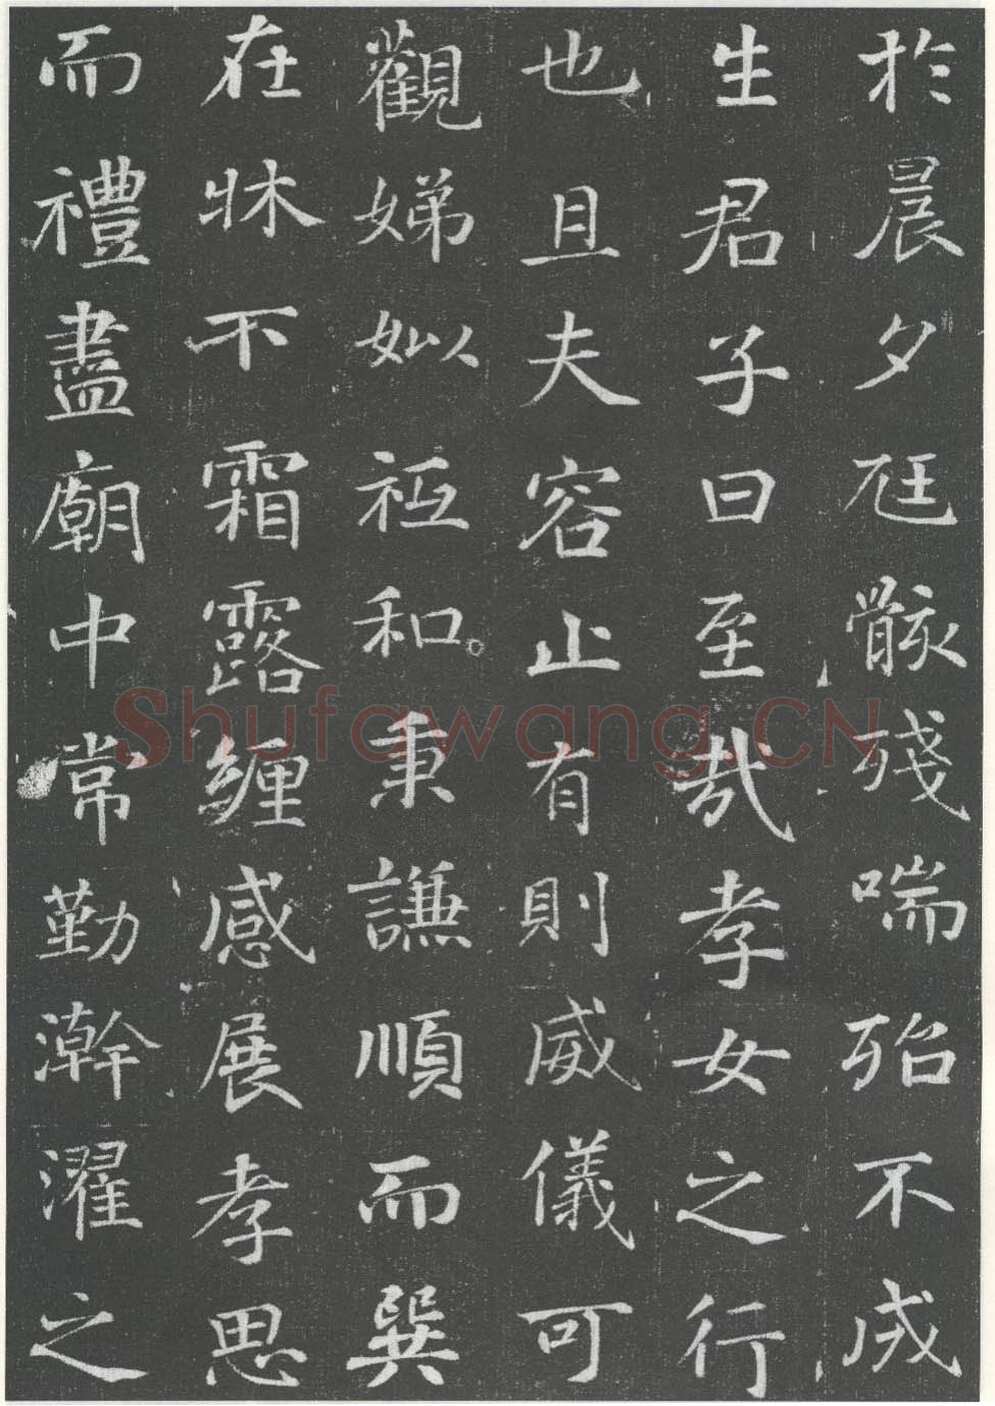 於晨夕尫骸殘喘殆不成
生君子曰至哉孝女之行
也且夫容止有則威儀可
觀娣姒祗和秉謙順而巽
在牀不霜露纏感展孝思
而禮盡廟中常勤澣濯之
Shufawang.CN